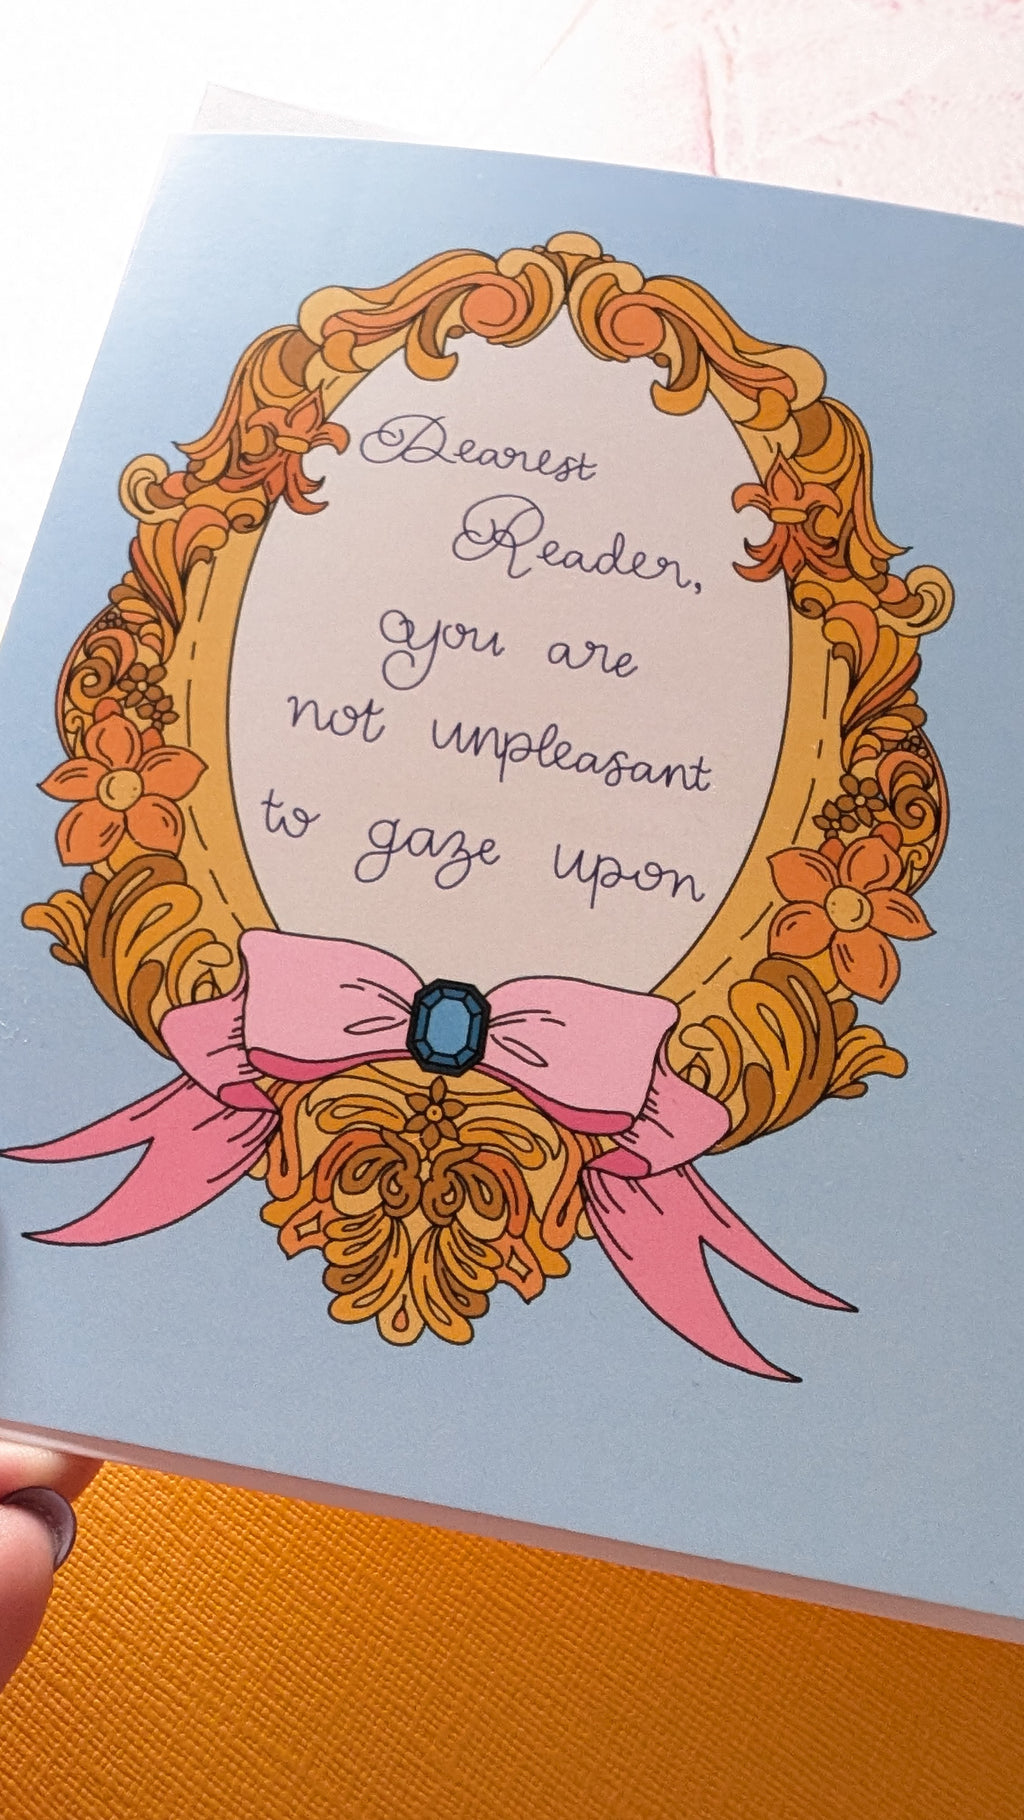 Dearest
Reader,
you are
not unpleasant
to gaze upon